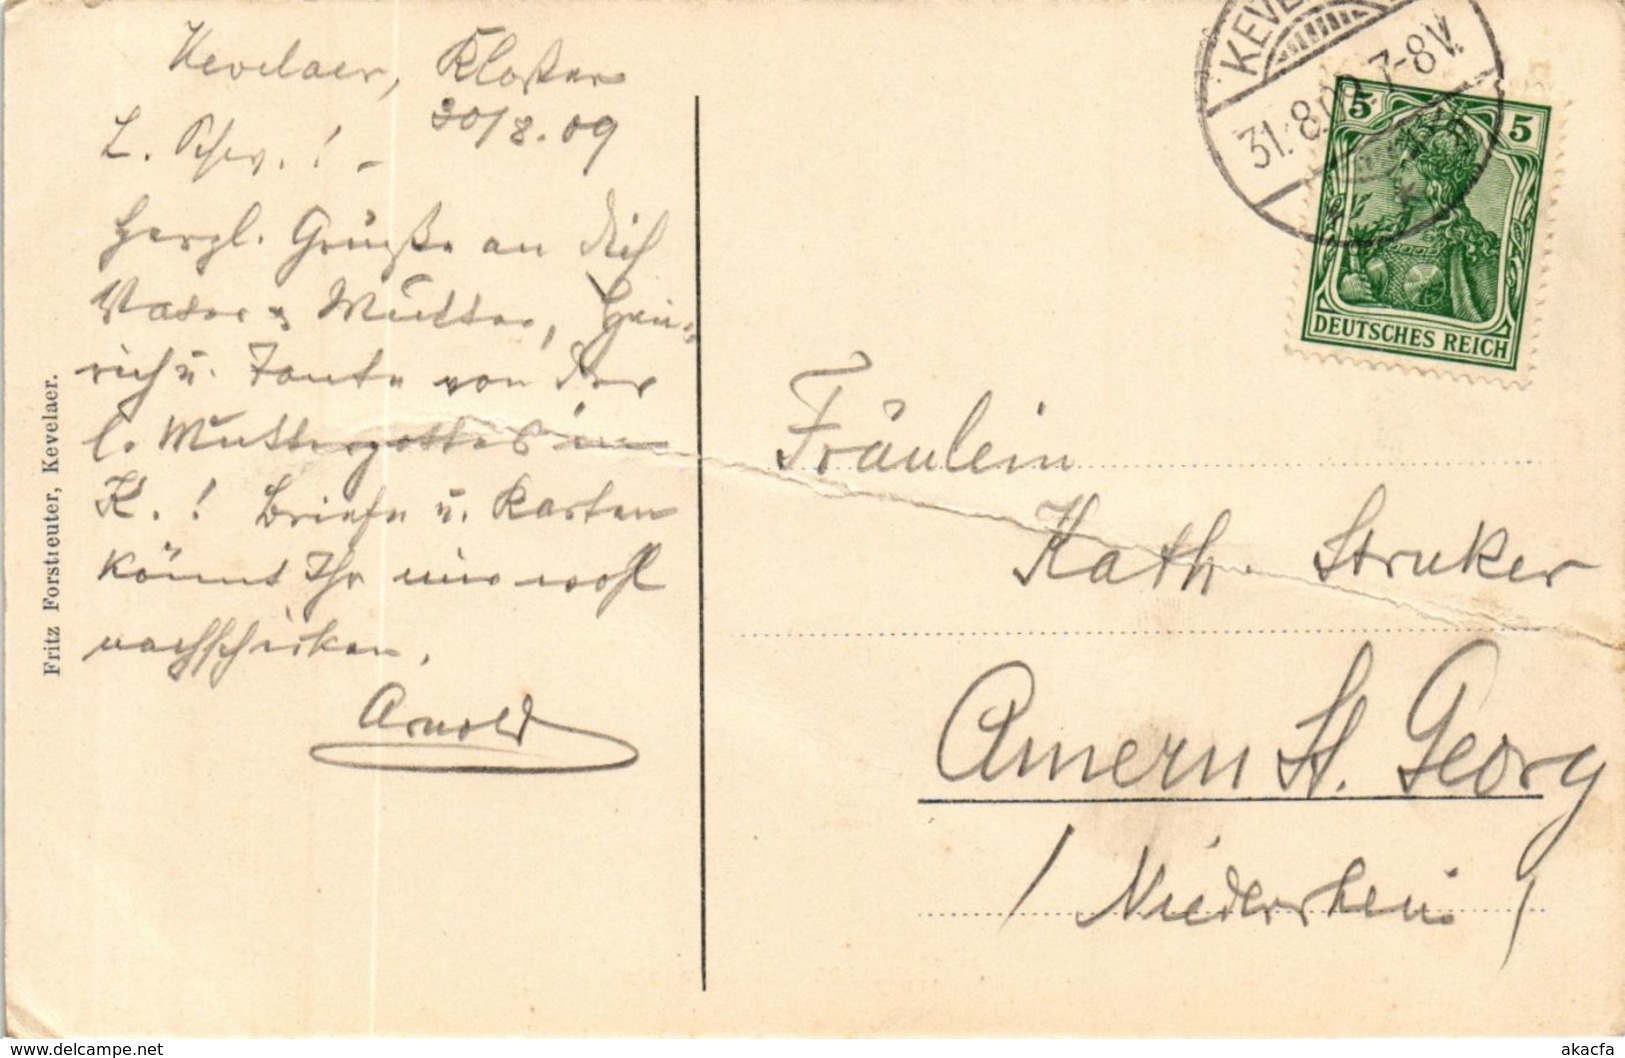 Kevelaer, Kloster
30/8.09
L. Schw.! -
Herzl. Grüße an Dich
Vater u. Mutter, Hein-
rich u. Tante von der
l. Muttergottes in
K.! Briefe u. Karten
könnt Ihr mir wohl
nachschicken.
Arnold
Fritz Forstreuter, Kevelaer.
KEVE
31.8.09 7-8V.
5 5
DEUTSCHES REICH
Fräulein
Kath. Struker
Amern St. Georg
/ Niederrhein /
akacfa